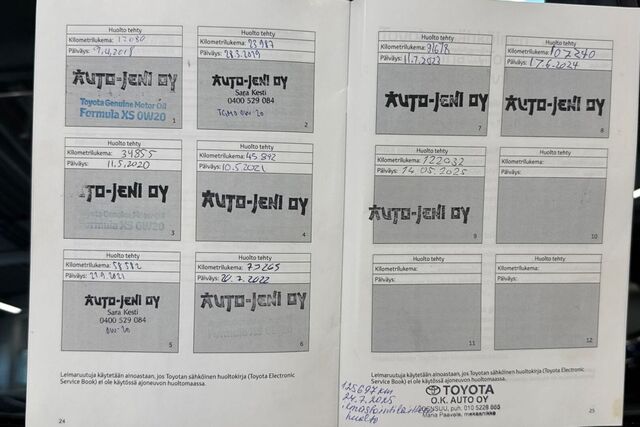 Huolto tehty
Kilometrilukema:
Päiväys: 9.4.2018
AUTO-JENI OY
Toyota Genuine Motor Oil
Formula XS 0W20
1
Huolto tehty
Kilometrilukema: 23987
Päiväys: 28.3.2019
AUTO-JENI OY
Sara Kesti
0400 529 084
TGMO 0W-20
2
Huolto tehty
Kilometrilukema: 34855
Päiväys: 11.5.2020
TO-JENI OY
Toyota Genuine Motor Oil
Formula XS 0W20
3
Huolto tehty
Kilometrilukema: 45892
Päiväys: 10.5.2021
AUTO-JENI OY
4
Huolto tehty
Kilometrilukema: 58582
Päiväys:
AUTO-JENI OY
Sara Kesti
0400 529 084
0W-20
5
Huolto tehty
Kilometrilukema: 75265
Päiväys: 20.7.2022
AUTO-JENI OY
Formula XS 0W20
6
Leimaruutuja käytetään ainoastaan, jos Toyotan sähköinen huoltokirja (Toyota Electronic
Service Book) ei ole käytössä ajoneuvon huoltomaassa.
24
Huolto tehty
Kilometrilukema: 91678
Päiväys: 11.7.2023
AUTO-JENI OY
7
Huolto tehty
Kilometrilukema: 107240
Päiväys: 17.6.2024
AUTO-JENI OY
8
Huolto tehty
Kilometrilukema: 122032
Päiväys: 14.05.2025
AUTO-JENI OY
9
Huolto tehty
Kilometrilukema:
Päiväys:
10
Huolto tehty
Kilometrilukema:
Päiväys:
11
Huolto tehty
Kilometrilukema:
Päiväys:
12
Leimaruutuja käytetään ainoastaan, jos Toyotan sähköinen huoltokirja (Toyota Electronic
Service Book) ei ole käytössä ajoneuvon huoltomaassa.
125697 km
24.7.2025
ilmastointilaitteen
huolto
TOYOTA
O.K. AUTO OY
JOENSUU, puh. 010 5228 865
Maria Paavola, mekaanikko
25